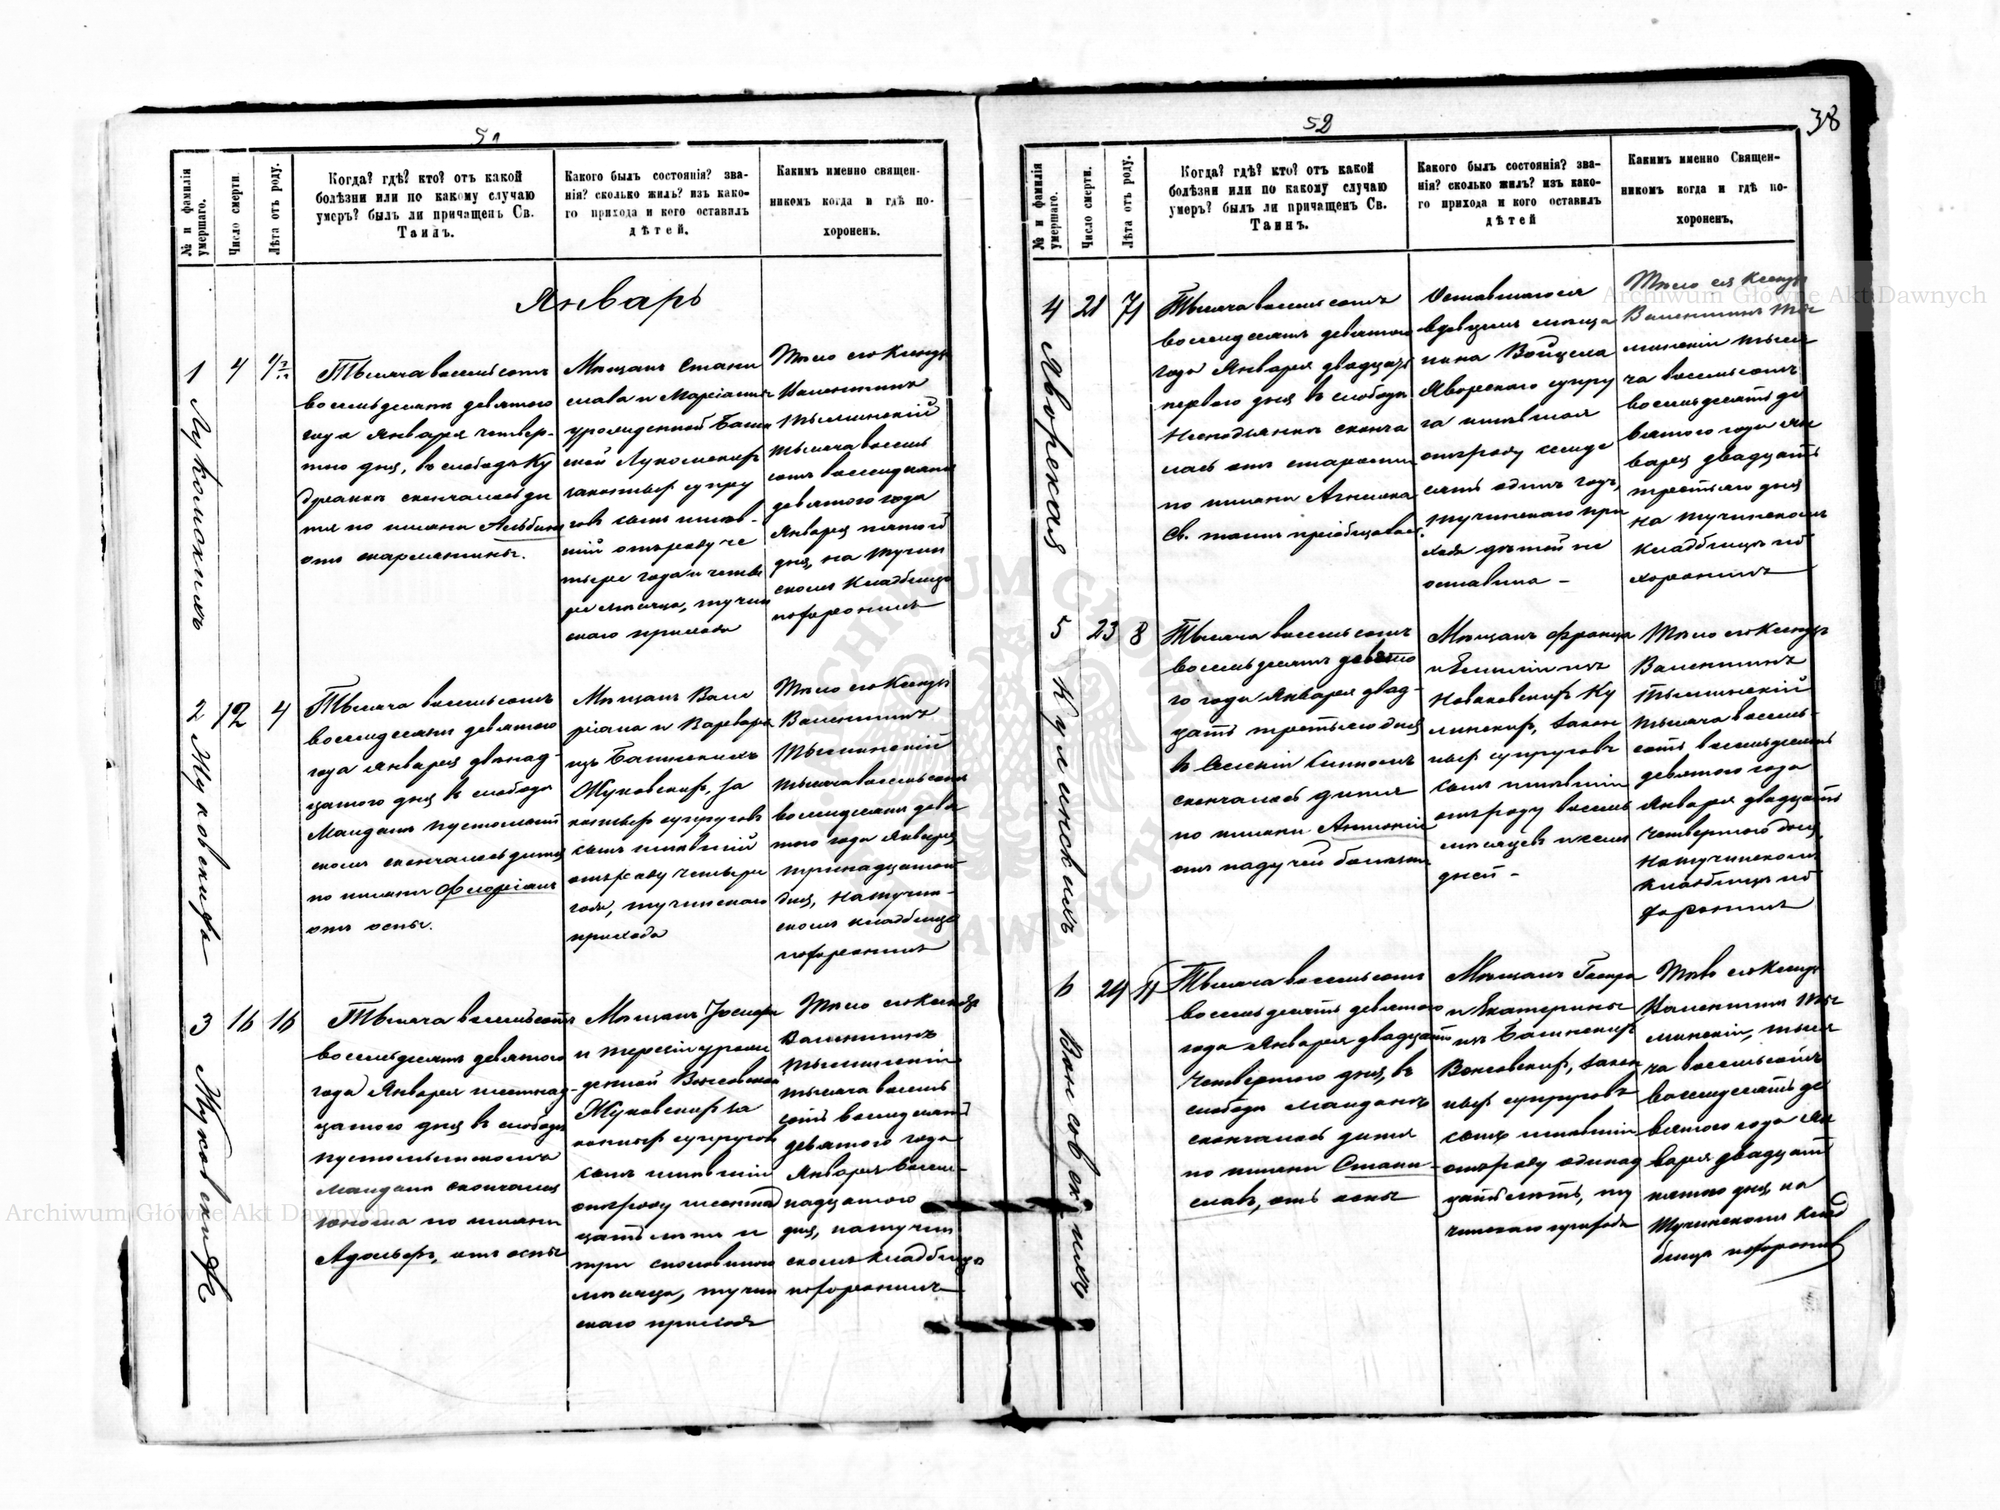 51
№ и фамилія умершаго.
Число смерти.
Лѣта отъ роду.
Когда? гдѣ? кто? отъ какой
болѣзни или по какому случаю
умеръ? былъ ли причащенъ Св.
Таинъ.
Какого былъ состоянія? зва-
нія? сколько жилъ? изъ како-
го прихода и кого оставилъ
дѣтей.
Какимъ именно священ-
никомъ когда и гдѣ по-
хороненъ.
Январь
1
4
Тысяча восемьсотъ
восемьдесятъ девятого
года Января четвер-
того дня, въ слободѣ
скончалось ди
тя по имени
отъ скарлатины.
Мѣщанъ Стани
слава и Маріанны
урожденной
законныхъ супру
говъ сынъ имѣв-
шій отъ роду че
тыре года и четы
ре мѣсяца, тучин
скаго прихода
Тѣло его Ксендзъ
Валентинъ
Тысяча восемь
сотъ восемьдесятъ
девятого года
Января пятого
дня, на Тучин
скомъ кладбищѣ
похоронилъ
2 Жуковскихъ
12
4
Тысяча восемьсотъ
восемьдесятъ девятого
года Января двѣнад-
цатого дня въ слободѣ
Майданъ
скомъ скончалось дитя
по имени Флоріанъ
отъ оспы.
Мѣщанъ Вале
ріана и Варвары
изъ
Жуковскихъ, за
конныхъ супруговъ
сынъ имѣвшій
отъ роду четыре
года, тучинскаго
прихода
Тѣло его Ксендзъ
Валентинъ
тысяча восемьсотъ
восемьдесятъ девя
того года Января
тринадцатого
дня, на тучин-
скомъ кладбищѣ
похоронилъ
3 Жуковскихъ
16
16
Тысяча восемьсотъ
восемьдесятъ девятого
года Января шестнад-
цатого дня въ слободѣ
Майданъ скончался
юноша по имени
Адольфъ, отъ оспы
Мѣщанъ Іосифа
и урож
денной
Жуковскихъ за
конныхъ супруговъ
сынъ имѣвшій
отъ роду шестнад
цать лѣтъ и
три съ половиною
мѣсяца, тучин
скаго прихода
Тѣло его Ксендзъ
Валентинъ
тысяча восемь
сотъ восемьдесятъ
девятого года
Января восем-
надцатого
дня, на тучин
скомъ кладбищѣ
похоронилъ
52
38
№ и фамилія умершаго.
Число смерти.
Лѣта отъ роду.
Когда? гдѣ? кто? отъ какой
болѣзни или по какому случаю
умеръ? былъ ли причащенъ Св.
Таинъ.
Какого былъ состоянія? зва-
нія? сколько жилъ? изъ како-
го прихода и кого оставилъ
дѣтей
Какимъ именно Священ-
никомъ когда и гдѣ по-
хороненъ.
4 Яворская
21
71
Тысяча восемьсотъ
восемьдесятъ девятого
года Января двадцать
первого дня въ слободѣ
сконча
лась отъ старости
по имени
Св. таинъ
Оставшаяся
вдовцемъ мѣща
нина Войцеха
Яворскаго супру
га имѣвшая
отъ роду семьде
сятъ одинъ годъ,
Тучинскаго при
хода дѣтей не
оставила -
Тѣло ея Ксендзъ
Валентинъ
тыся
ча восемьсотъ
восемьдесятъ де
вятого года Ян
варя двадцать
третьяго дня
на тучинскомъ
кладбищѣ по
хоронилъ
5 Кулинскихъ
23
8
Тысяча восемьсотъ
восемьдесятъ девято
го года Января двад-
цать третьяго дня
въ
скончалось дитя
по имени Антоній
отъ падучей болѣзни
Мѣщанъ Франца
и Емиліи изъ
Новаковскихъ Ку
линскихъ, закон
ныхъ супруговъ
сынъ имѣвшій
отъ роду восемь
мѣсяцевъ и семь
дней -
Тѣло его Ксендзъ
Валентинъ
тысяча восемь-
сотъ восемьдесятъ
девятого года
Января двадцать
четвертого дня
на тучинскомъ
кладбищѣ по
хоронилъ
6 Вонсовскихъ
24
11
Тысяча восемьсотъ
восемьдесятъ девятого
года Января двадцать
четвертого дня, въ
слободѣ Майданъ
скончалось дитя
по имени Стани-
славъ, отъ оспы
Мѣщанъ
и Екатерины
изъ
Вонсовскихъ, закон
ныхъ супруговъ
сынъ имѣвшій
отъ роду одинад
цать лѣтъ, ту
чинскаго прихода
Тѣло его Ксендзъ
Валентинъ
тыся
ча восемьсотъ
восемьдесятъ де
вятого года Ян
варя двадцать
пятого дня на
Тучинскомъ клад
бищѣ похоронилъ
Archiwum Główne Akt Dawnych
Archiwum Główne Akt Dawnych
ARCHIWUM GŁÓWNE AKT DAWNYCH